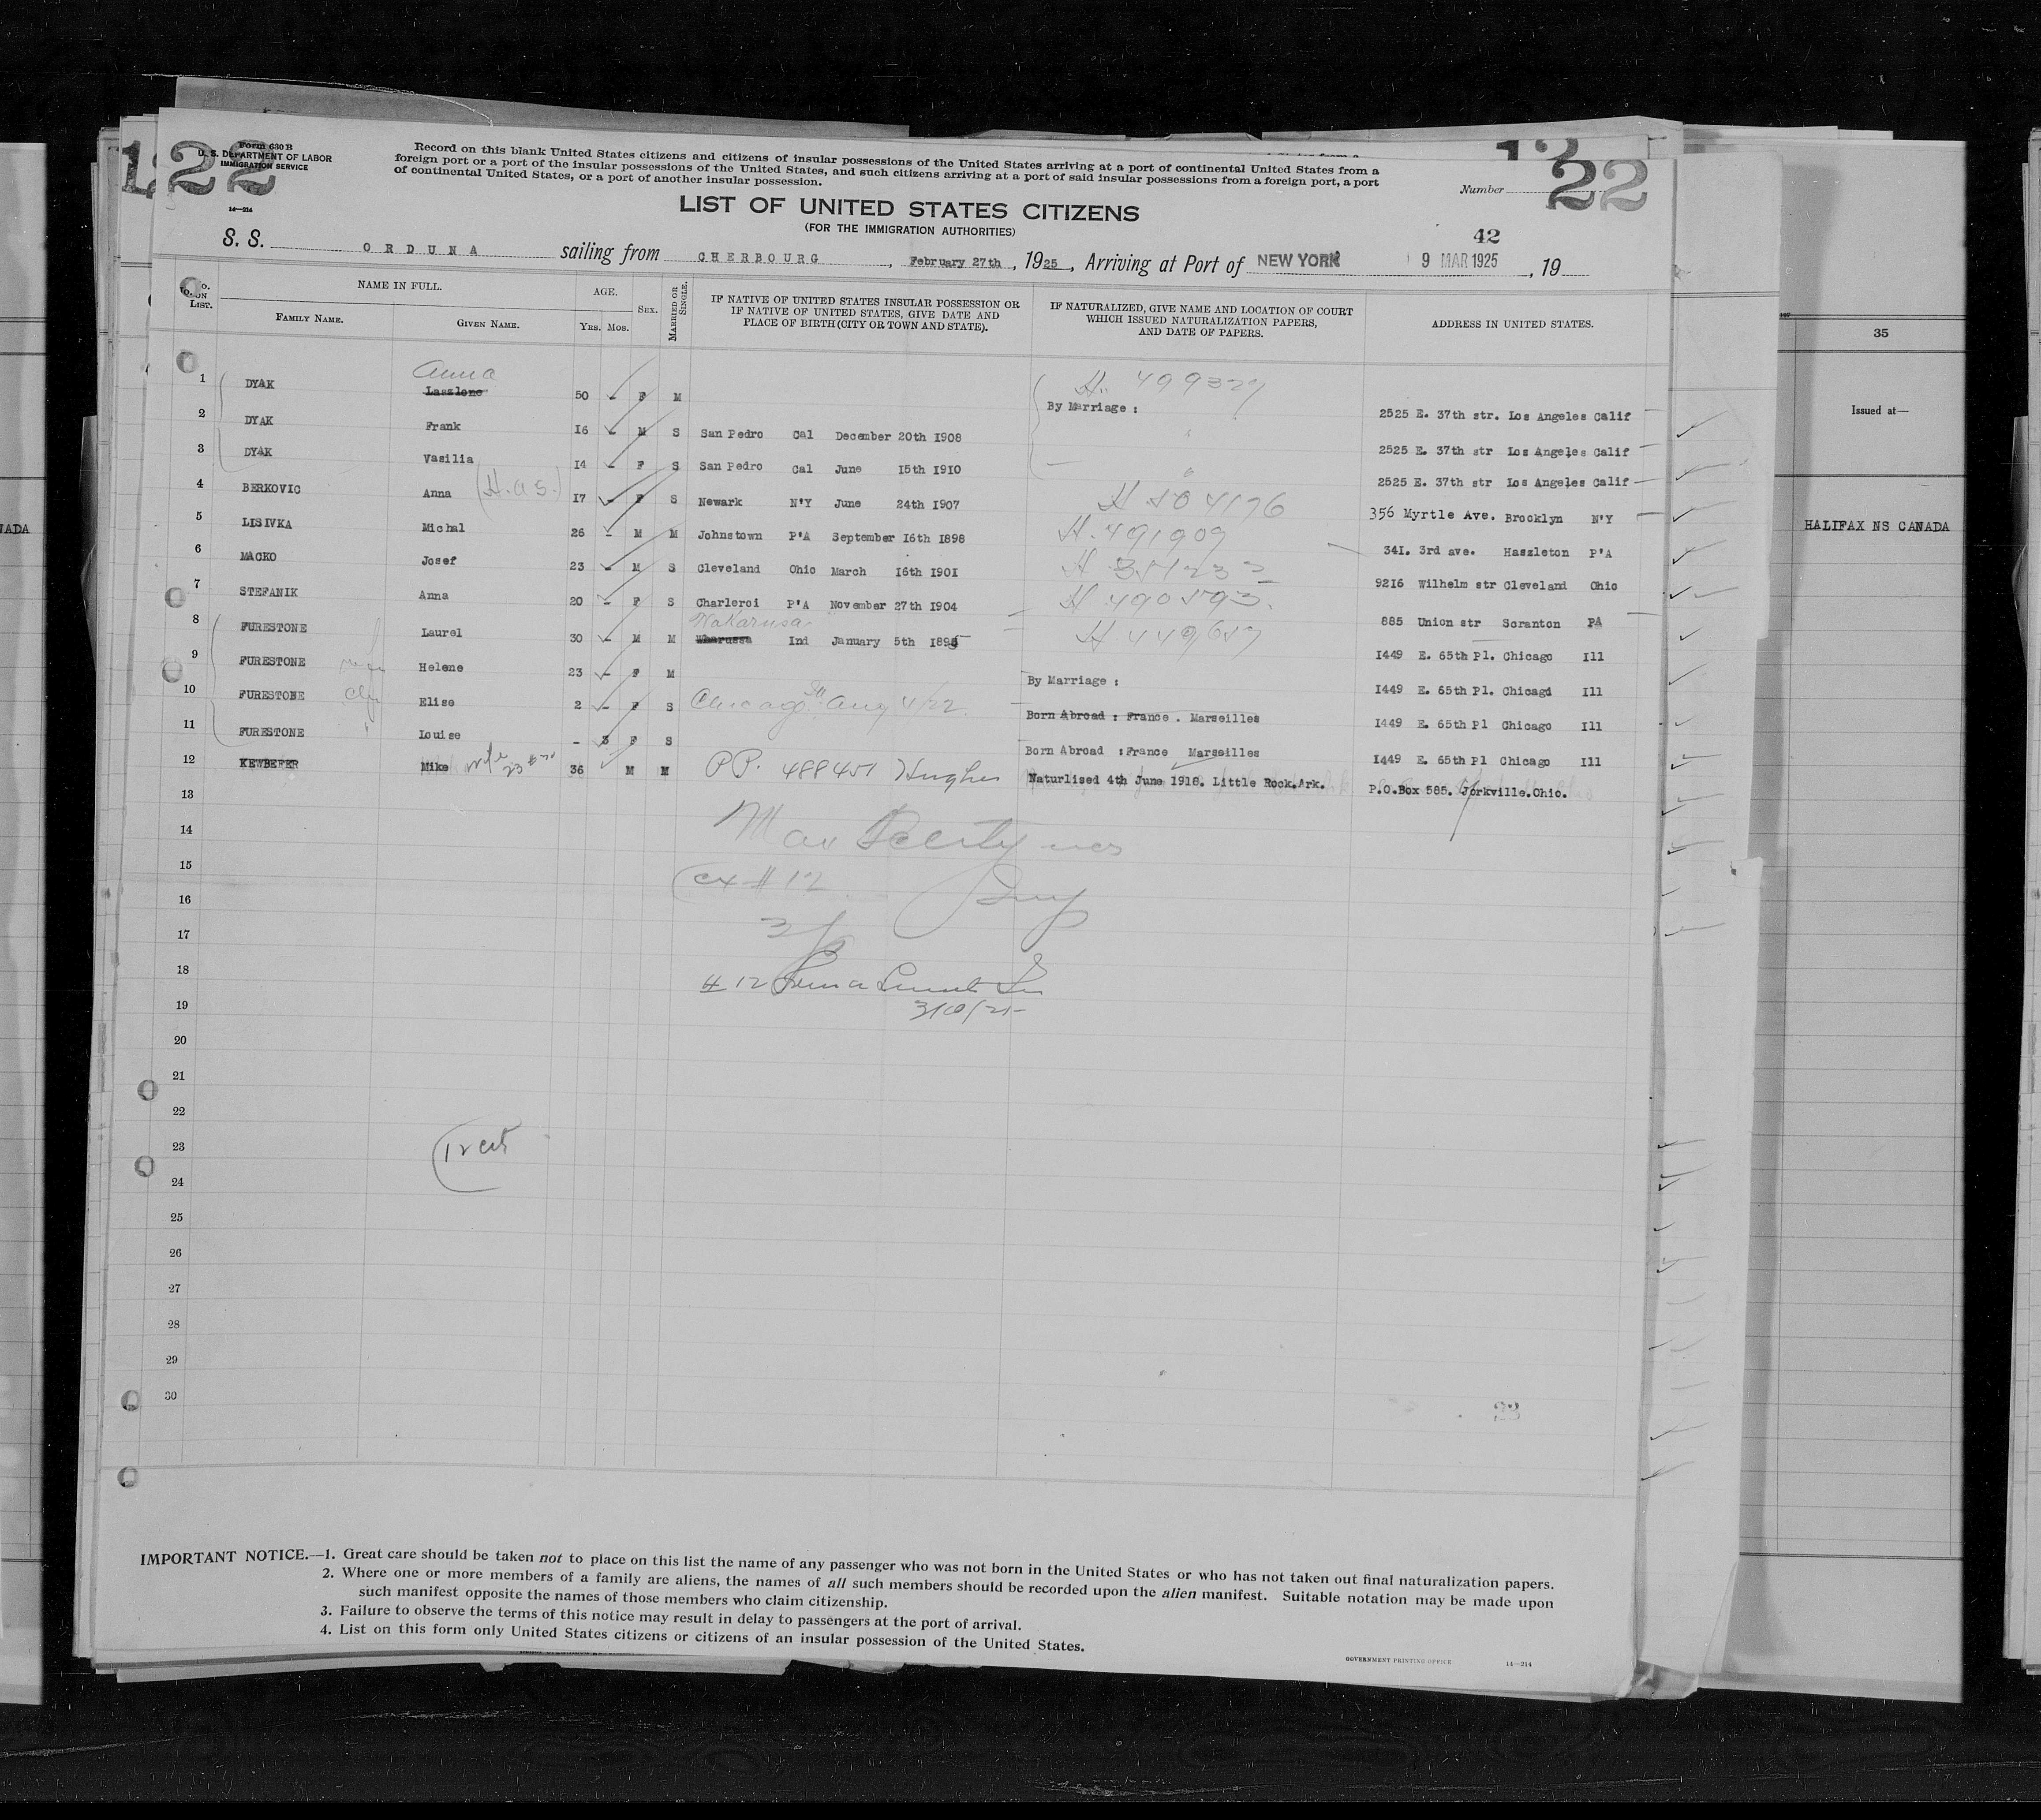 122
Form 630 B
U. S. DEPARTMENT OF LABOR
IMMIGRATION SERVICE
14—214
Record on this blank United States citizens and citizens of insular possessions of the United States arriving at a port of continental United States from a
foreign port or a port of the insular possessions of the United States, and such citizens arriving at a port of said insular possessions from a foreign port, a port
of continental United States, or a port of another insular possession.
Number 22
LIST OF UNITED STATES CITIZENS
(FOR THE IMMIGRATION AUTHORITIES)
42
S. S. ORDUNA sailing from CHERBOURG, February 27th, 1925, Arriving at Port of NEW YORK 9 MAR 1925, 19
No. ON LIST. NAME IN FULL. FAMILY NAME. GIVEN NAME. AGE. Yrs. Mos. SEX. MARRIED OR SINGLE. IF NATIVE OF UNITED STATES INSULAR POSSESSION OR IF NATIVE OF UNITED STATES, GIVE DATE AND PLACE OF BIRTH (CITY OR TOWN AND STATE). IF NATURALIZED, GIVE NAME AND LOCATION OF COURT WHICH ISSUED NATURALIZATION PAPERS, AND DATE OF PAPERS. ADDRESS IN UNITED STATES.
Anna H. 499327
1 DYAK Laszlone 50 - F M By Marriage : 2525 E. 37th str. Los Angeles Calif
2 DYAK Frank 16 - M S San Pedro Cal December 20th 1908 " 2525 E. 37th str Los Angeles Calif
3 DYAK Vasilia 14 - F S San Pedro Cal June 15th 1910 " 2525 E. 37th str Los Angeles Calif
4 BERKOVIC Anna (H.a.s.) 17 - F S Newark N'Y June 24th 1907 H 504176 356 Myrtle Ave. Brooklyn N'Y
5 LISIVKA Michal 26 - M M Johnstown P'A September 16th 1898 H. 491909 341. 3rd ave. Haszleton P'A
6 MACKO Josef 23 - M S Cleveland Ohio March 16th 1901 H 351232 9216 Wilhelm str Cleveland Ohio
7 STEFANIK Anna 20 - F S Charleroi P'A November 27th 1904 H 490593. 885 Union str Scranton PA
Wakarusa
8 FURESTONE Laurel 30 - M M Wharussa Ind January 5th 1895 H 449657 1449 E. 65th Pl. Chicago Ill
9 FURESTONE Helene 23 - F M By Marriage : 1449 E. 65th Pl. Chicago Ill
10 FURESTONE Elise 2 - F S Chicago Ill Aug 4/22 Born Abroad : France . Marseilles 1449 E. 65th Pl Chicago Ill
11 FURESTONE Louise - 3 F S Born Abroad : France Marseilles 1449 E. 65th Pl Chicago Ill
12 KEWBEFER Mike 36 M M PP. 488451 Hughes Naturlised 4th June 1918. Little Rock.Ark. P.O.Box 585. Yorkville.Ohio.
13
14
15 #12
16
17
18 #12
19
20
21
22
23 12
24
25
26
27
28
29
30
IMPORTANT NOTICE.—1. Great care should be taken not to place on this list the name of any passenger who was not born in the United States or who has not taken out final naturalization papers.
2. Where one or more members of a family are aliens, the names of all such members should be recorded upon the alien manifest. Suitable notation may be made upon
such manifest opposite the names of those members who claim citizenship.
3. Failure to observe the terms of this notice may result in delay to passengers at the port of arrival.
4. List on this form only United States citizens or citizens of an insular possession of the United States.
GOVERNMENT PRINTING OFFICE 14—214
35
Issued at—
HALIFAX NS CANADA